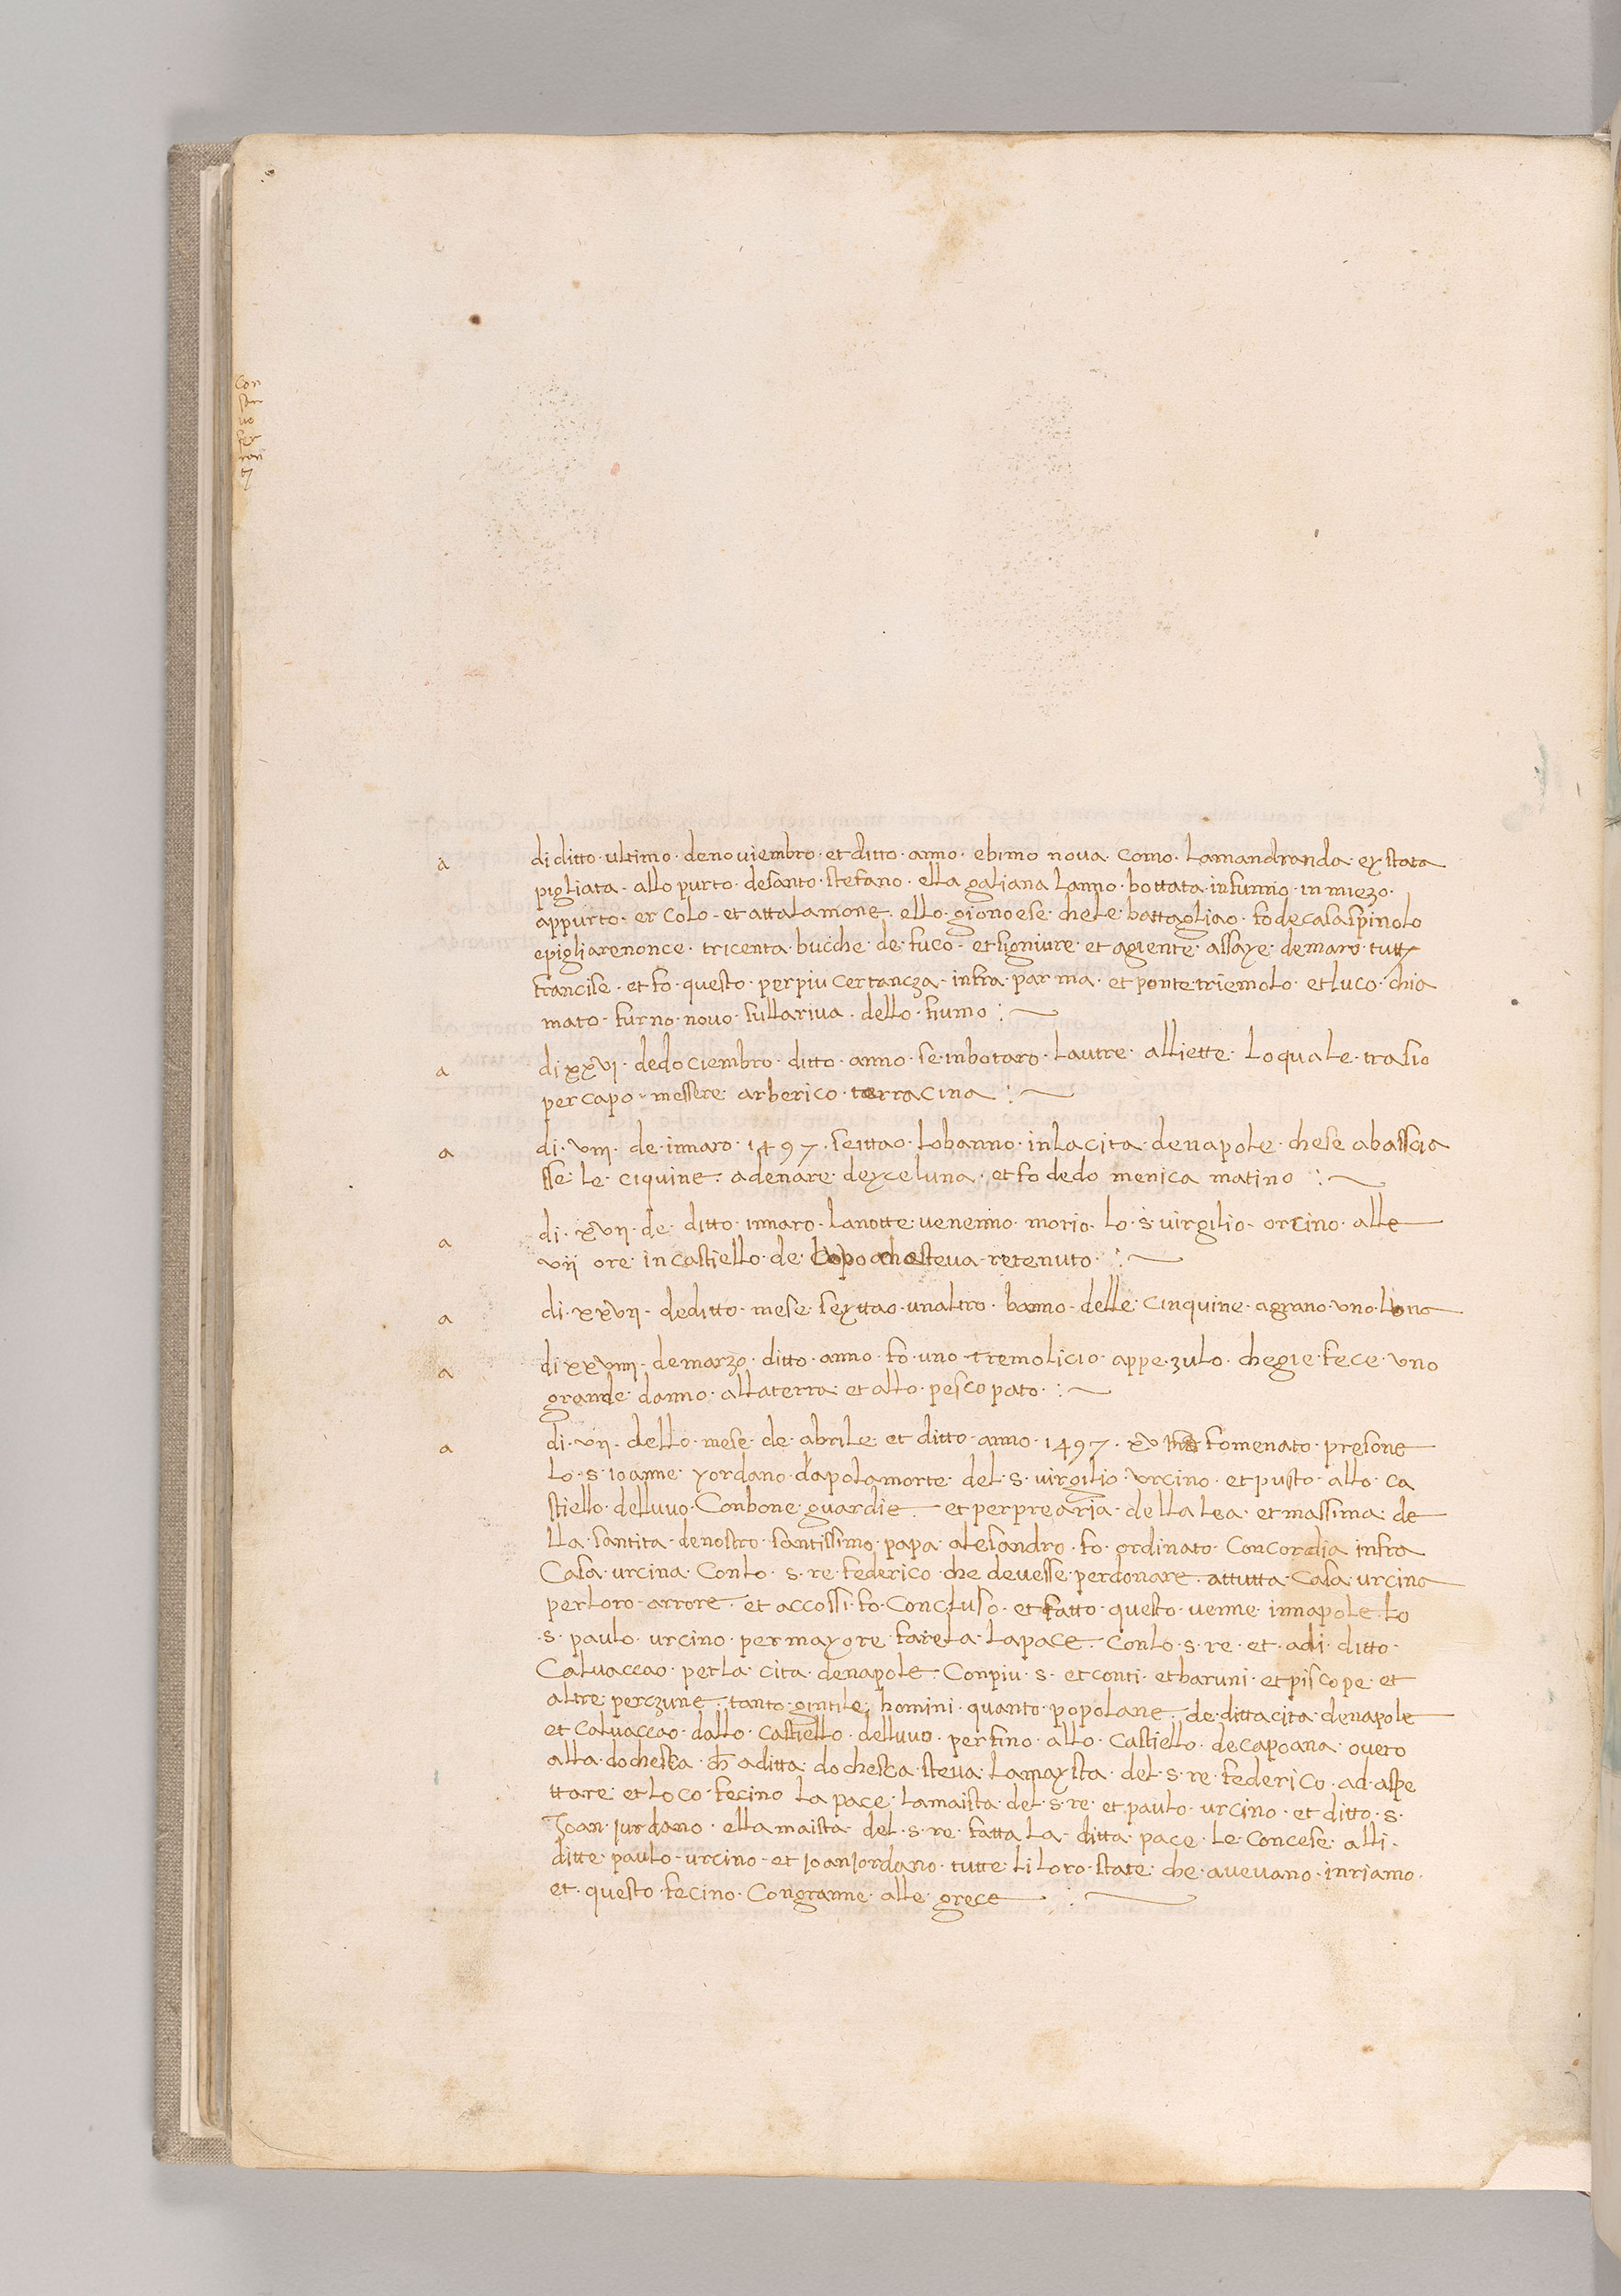 Con
sar
uo
fer
ran
tj
a di ditto · ultimo · de noviembro · et ditto · anno · ebimo nova · como · lamandranda · ey stata
pigliata · allo purto · desanto · stefano · ella galiana lanno · bottata · infunno · in miezo ·
appurto · ercolo · et attalamone · ello · gionoese · chele · battagliao · fo de casa spinolo
epigliarenonce · tricenta · bucche · de · fuco · et signiure · et agiente · assaye · demaro · tutty
francise · et fo · questo · per piu certancza · infra · parma · et ponte triemolo · et luco · chia
mato · furno · novo · sullariva · dello · fiumo :~
a di xxvi · dedociembro · ditto · anno · se inbotaro · lautre · alliette · loquale · trasio
per capo · messere · arberico · terracina :~
a di · viii · de · innaro · 1497 · seittao · lobanno · inlacita · denapole · chese abassia
sse · le · ciquine · adenare · deyceluna · et fo dedo menica matino :~
a di · xvii · de · ditto · innaro · lanotte · venenno · morio · lo · s · virgilio · orcino · alle
vii ore · in castiello · de · chesteva · retenuto · :~
a di · xxvii · deditto · mese · seyttao · unaltro · banno · delle · cinquine · agrano · uno
a di xxviiii · demarzo · ditto · anno · fo · uno · tremolicio · appe · zulo · chegie · fece · uno
grande · danno · allaterra · et allo · pescopato · :~
a di · vii · dello · mese · de · abrile · et ditto · anno · 1497 · xv fo menato · presone
lo · s · ioanne · yordano · dapolamorte · del · s · virgilio · urcino · et pusto · allo · ca
stiello · delluvo · Conbone · guardie · et per pregaria · della lea · et massima · de
lla · santita · denostro · santissimo · papa · alesandro · fo · ordinato · Concordia infra
Casa · urcina · Conlo · s · re · federico · che devesse · perdonare · attutta · Casa · urcina
perloro · arrore · et accossi · fo · Concluso · et fatto · questo · venne · innapole · lo
· s · paulo · urcino · permayore · farela · lapace · conlo · s · re · et · adi · ditto ·
Calvaccao · perla · cita · denapole · Conpiu · s · et conti · et baruni · et piscope · et
altre · perczune · tanto · gintile · homini · quanto · popolane · de · ditta cita · denapole
et Calvaccao · dallo · castiello · delluvo · perfino · allo · castiello · de capoana · overo
alla · dochesca · ch aditta · dochesca · steva · lamaysta · del · s · re · federico · ad · aspe
ttare · et loco · fecino la pace · lamaista · del · s · re · et paulo · urcino · et ditto · s ·
Joan · jurdano · ella maista · del · s · re · fatta la · ditta · pace · le · concese · alli ·
ditte · paulo · urcino · et joan jordano · tutte · li loro · state · che · avevano · inriamo ·
et · questo · fecino · Congranne · alle · grece :~